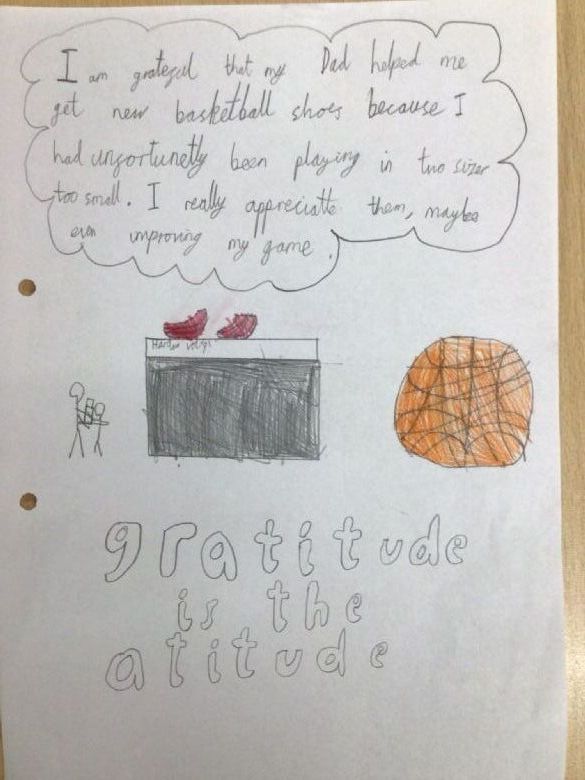 I am grateful that my Dad helped me
get new basketball shoes because I
had unfortunetly been playing in two sizes
too small. I really appreciatte them, maybee
even improving my game.
Harden Vol
gratitude
is the
atitude